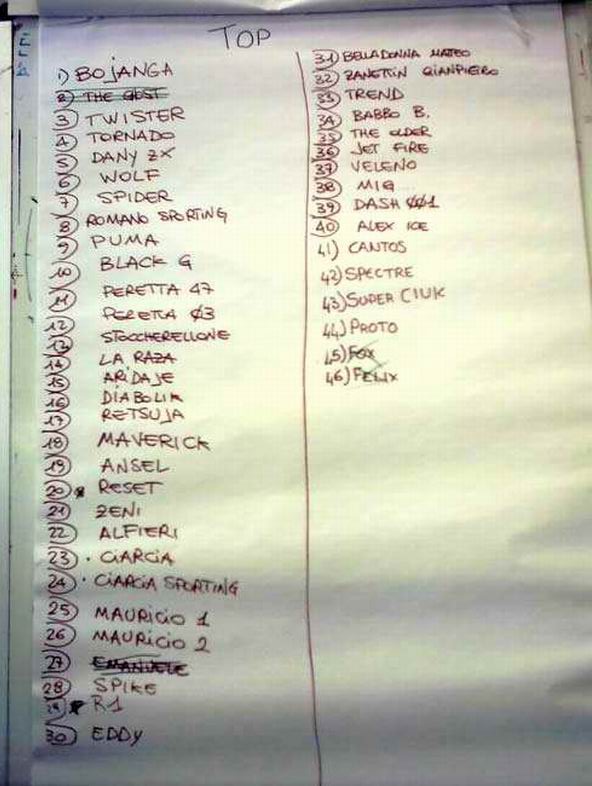 TOP
1) BOJANGA
2) THE GOST
3) TWISTER
4) TORNADO
5) DANY ZX
6) WOLF
7) SPIDER
8) ROMANO SPORTING
9) PUMA
10) BLACK G
11) PERETTA 47
12) PERETTA Ø3
13) STOCCHERELLONE
14) LA RAZA
15) ARIDAJE
16) DIABOLIK
17) RETSUJA
18) MAVERICK
19) ANSEL
20) RESET
21) ZENI
22) ALFIERI
23) • CIARCIA
24) • CIARCIA SPORTING
25) MAURICIO 1
26) MAURICIO 2
27) EMANUELE
28) SPIKE
29) R1
30) EDDY
31) BELLADONNA MATEO
32) ZANETTIN GIANPIERO
33) TREND
34) BABBO B.
35) THE OLDER
36) JET FIRE
37) VELENO
38) MIG
39) DASH ØØ1
40) ALEX ICE
41) CANTOS
42) SPECTRE
43) SUPER CIUK
44) PROTO
45) FOX
46) FELIX